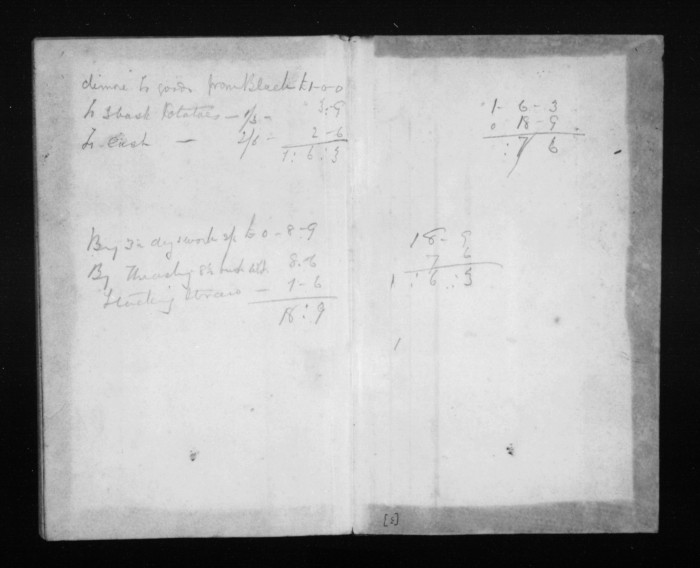 to goods from Black £1-0-0
To 3 bush Potatoes - 1/3 - 3:9
To Cash - 2/6 - 2-6
1:6:3
By days work £0-8-9
By Thrashing 8.6
Stacking straw - 1-6
18:9
1-6-3
0 18-9
:7 6
18-9
7 6
1:6:3
1
[s]